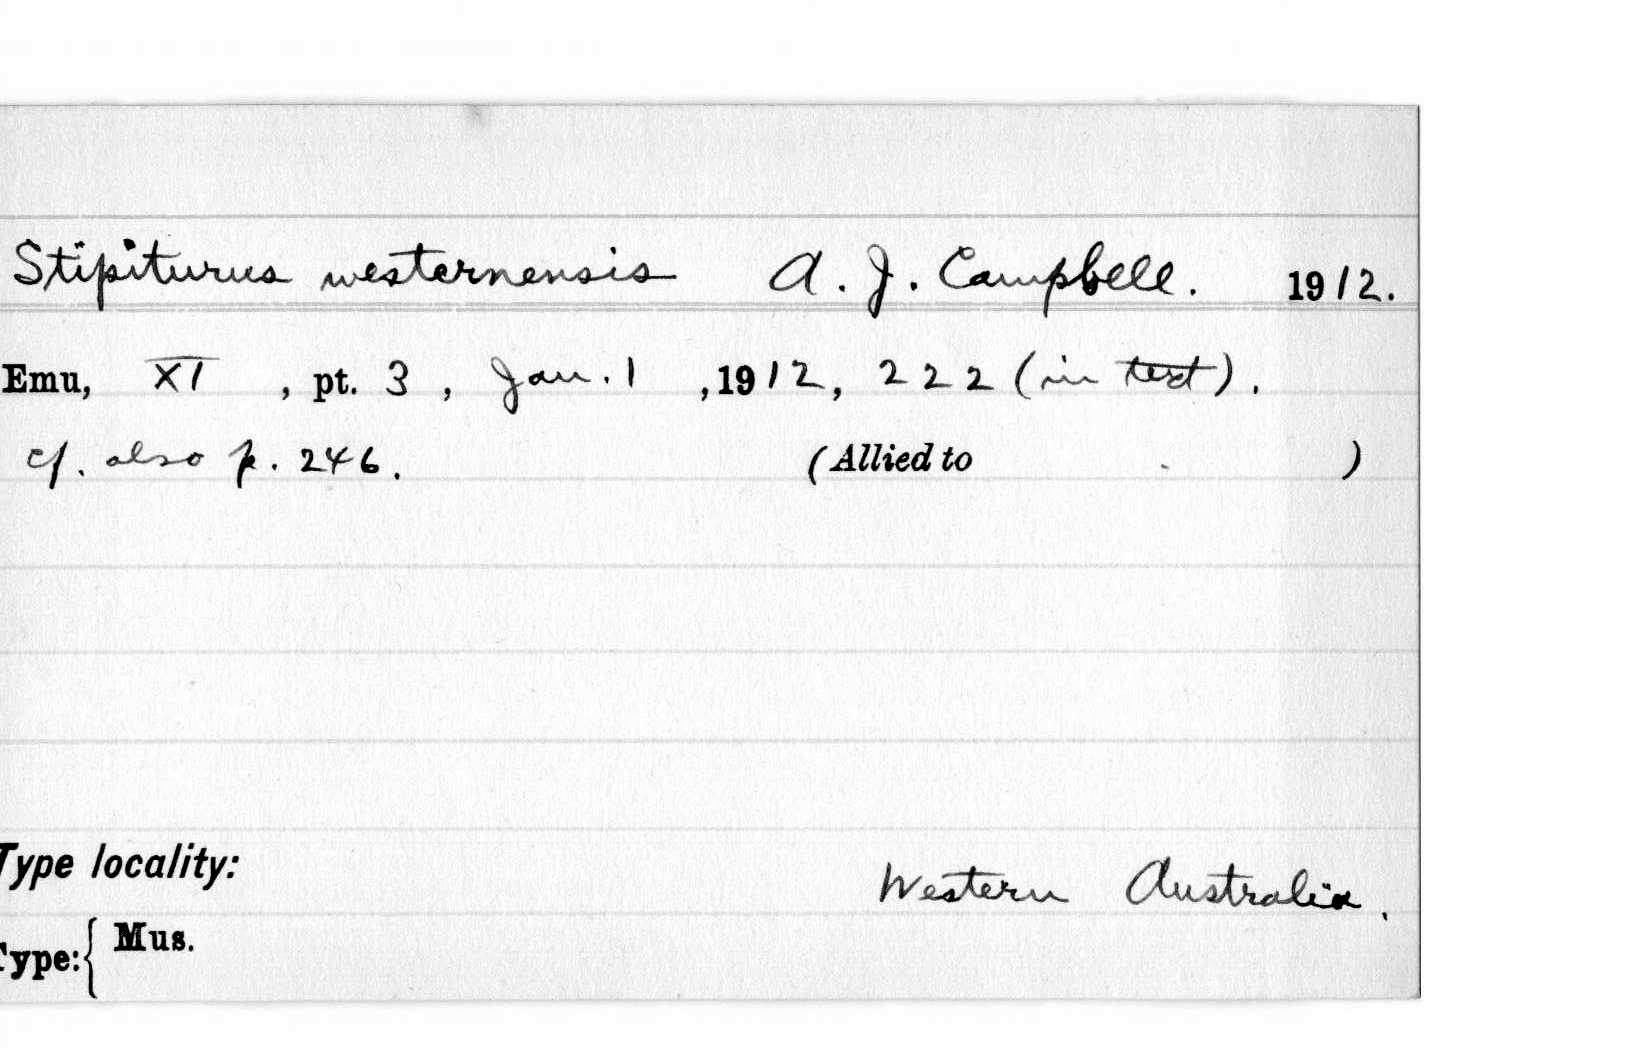 Stipiturus westernensis A. J. Campbell. 1912.
Emu, XI, pt. 3, Jan. 1, 1912, 222 (in text).
cf. also p. 246. (Allied to )
Type locality: Western Australia.
Type: { Mus.